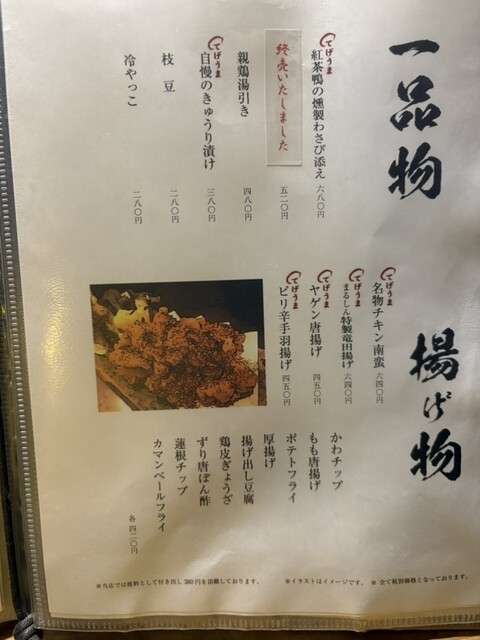 一品物
てげうま
紅茶鴨の燻製わさび添え 六八〇円
終売いたしました
五二〇円
親鶏湯引き 四八〇円
てげうま
自慢のきゅうり漬け 三八〇円
枝豆 二八〇円
冷やっこ 二八〇円
揚げ物
てげうま
名物チキン南蛮 六四〇円
てげうま
まるしん特製竜田揚げ 六四〇円
てげうま
ヤゲン唐揚げ 四五〇円
てげうま
ピリ辛手羽揚げ 四五〇円
かわチップ
もも唐揚げ
ポテトフライ
厚揚げ
揚げ出し豆腐
鶏皮ぎょうざ
ずり唐ぽん酢
蓮根チップ
カマンベールフライ
各四二〇円
※当店では席料として付き出し380円を頂戴しております。
※イラストはイメージです。
※全て税別価格となっております。